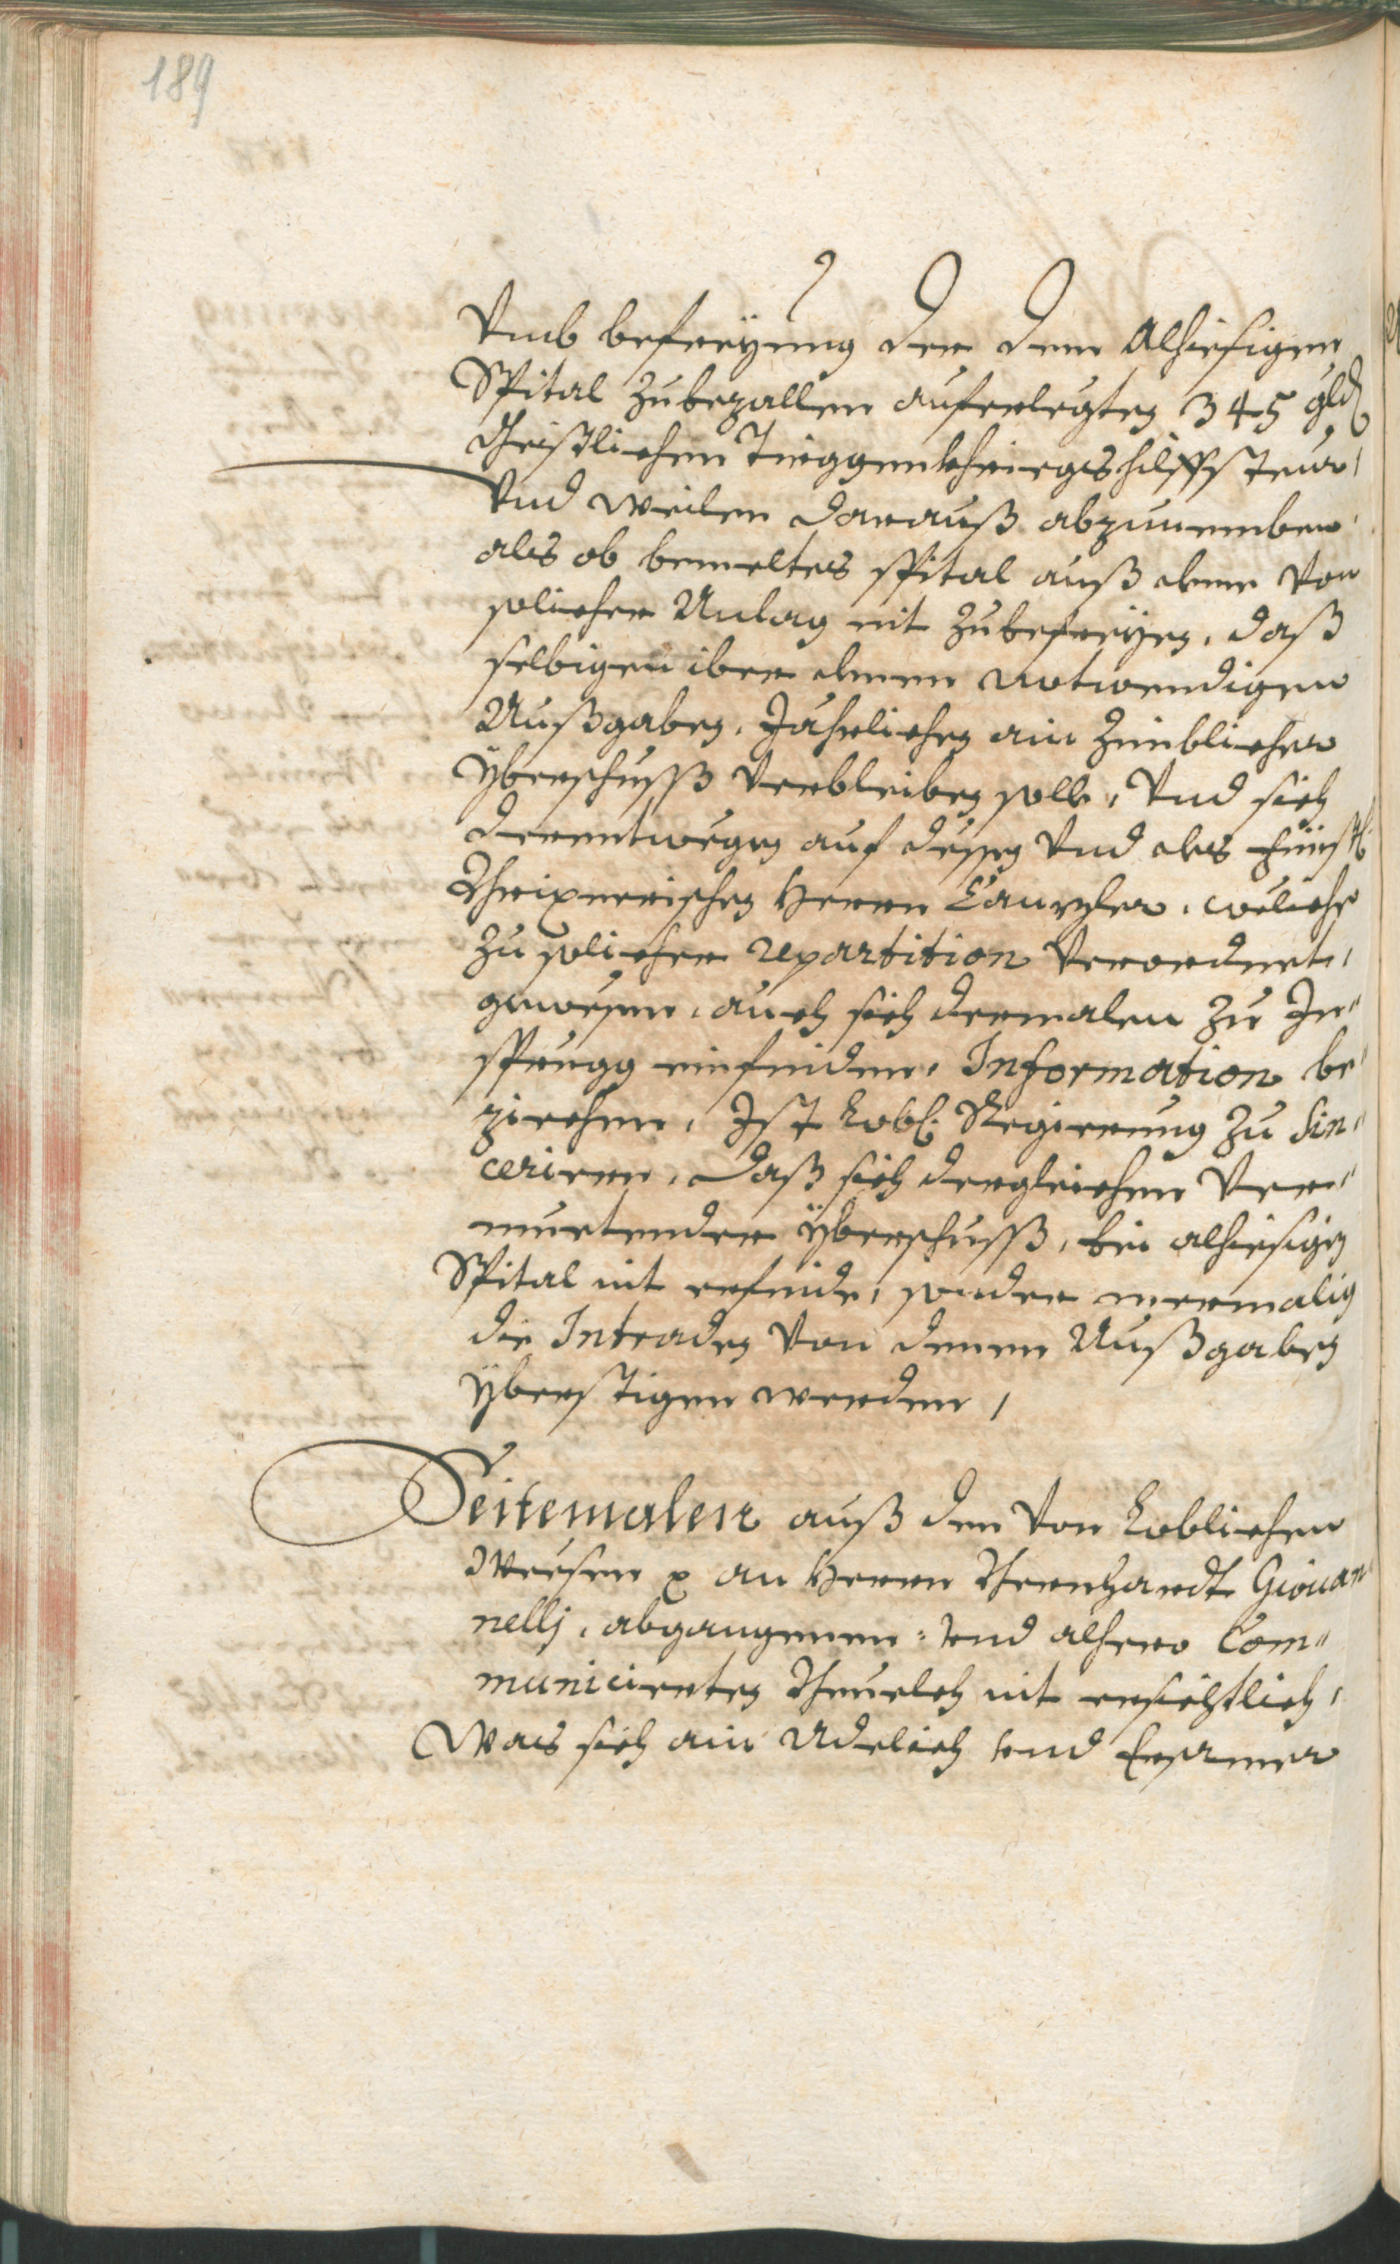 189
Vmb befreÿung der dem Alhiesigen
Spital zubezallen auferlegten 345 gld
Christlichen Tirggenkhriegshilffsteur,
Vnd weilen darauß abzunemben
als ob bemeltes spital auß deme von
solicher Anlag nit zubefreÿen, daß
selbigen iber denen notwendigen
Außgaben, Jährlichen ain zimblicher
Yberschuss verbleiben solle, Vnd sich
derentwegen auf dessen Vnd des Fürstl:
Brixnerischen Herrn Canzler, weliche
zu solicher repartition verordnet,
gewesen, auch sich dermalen zu Jn"
sprugg einfinden, Information be"
ziechen, Ist Lobl: Regierung zu Sin"
ceriren, daß sich dergleichen ver"
muetender Yberschuss, bei alhiesigen
Spital nit erfinde, sonder mermalig
die Intraden von denen Außgaben
Yberstigen werden,
Seitemalen auß den von Loblichen
Weesen p an Herrn Bernhardt Giouan
nellj, abgangenen: vnd alhero Com"
municierten Beuelch nit ersichtlich,
Was sich ain Adelich vnd